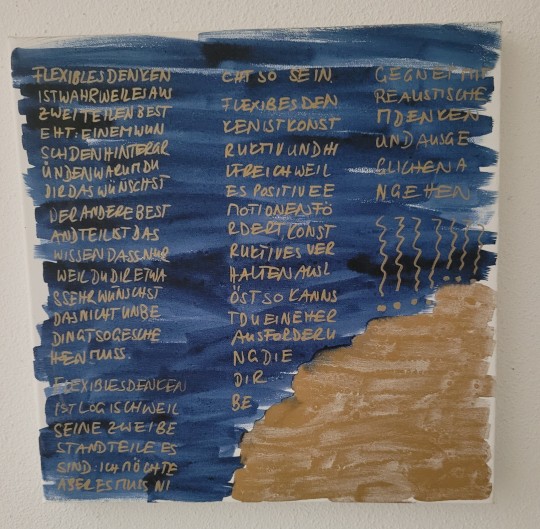 FLEXIBLES DENKEN
IST WAHR WEIL ES AUS
ZWEI TEILEN BEST
EHT: EINEM WUN
SCH DEN HINTERGR
ÜNDEN WARUM DU
DIR DAS WÜNSCHST
DER ANDERE BEST
ANDTEIL IST DAS
WISSEN DASS NUR
WEIL DU DIR ETWA
S SEHR WÜNSCHST
DAS NICHT UNBE
DINGT SO GESCHE
HEN MUSS.
FLEXIBLES DENKEN
IST LOGISCH WEIL
SEINE ZWEI BE
STANDTEILE ES
SIND: ICH MÖCHTE
ABER ES MUSS NI
CHT SO SEIN.
FLEXIBES DEN
KEN IST KONST
RUKTIV UND HI
LFREICH WEIL
ES POSITIVE E
MOTIONEN FÖ
RDERT KONST
RUKTIVES VER
HALTEN AUSL
ÖST SO KANNS
T DU EINE HER
AUSFORDERU
NG DIE
DIR
BE
GEGNET MIT
REAUSTISCHE
M DENKEN
UND AUSGE
GLICHEN A
NGEHEN